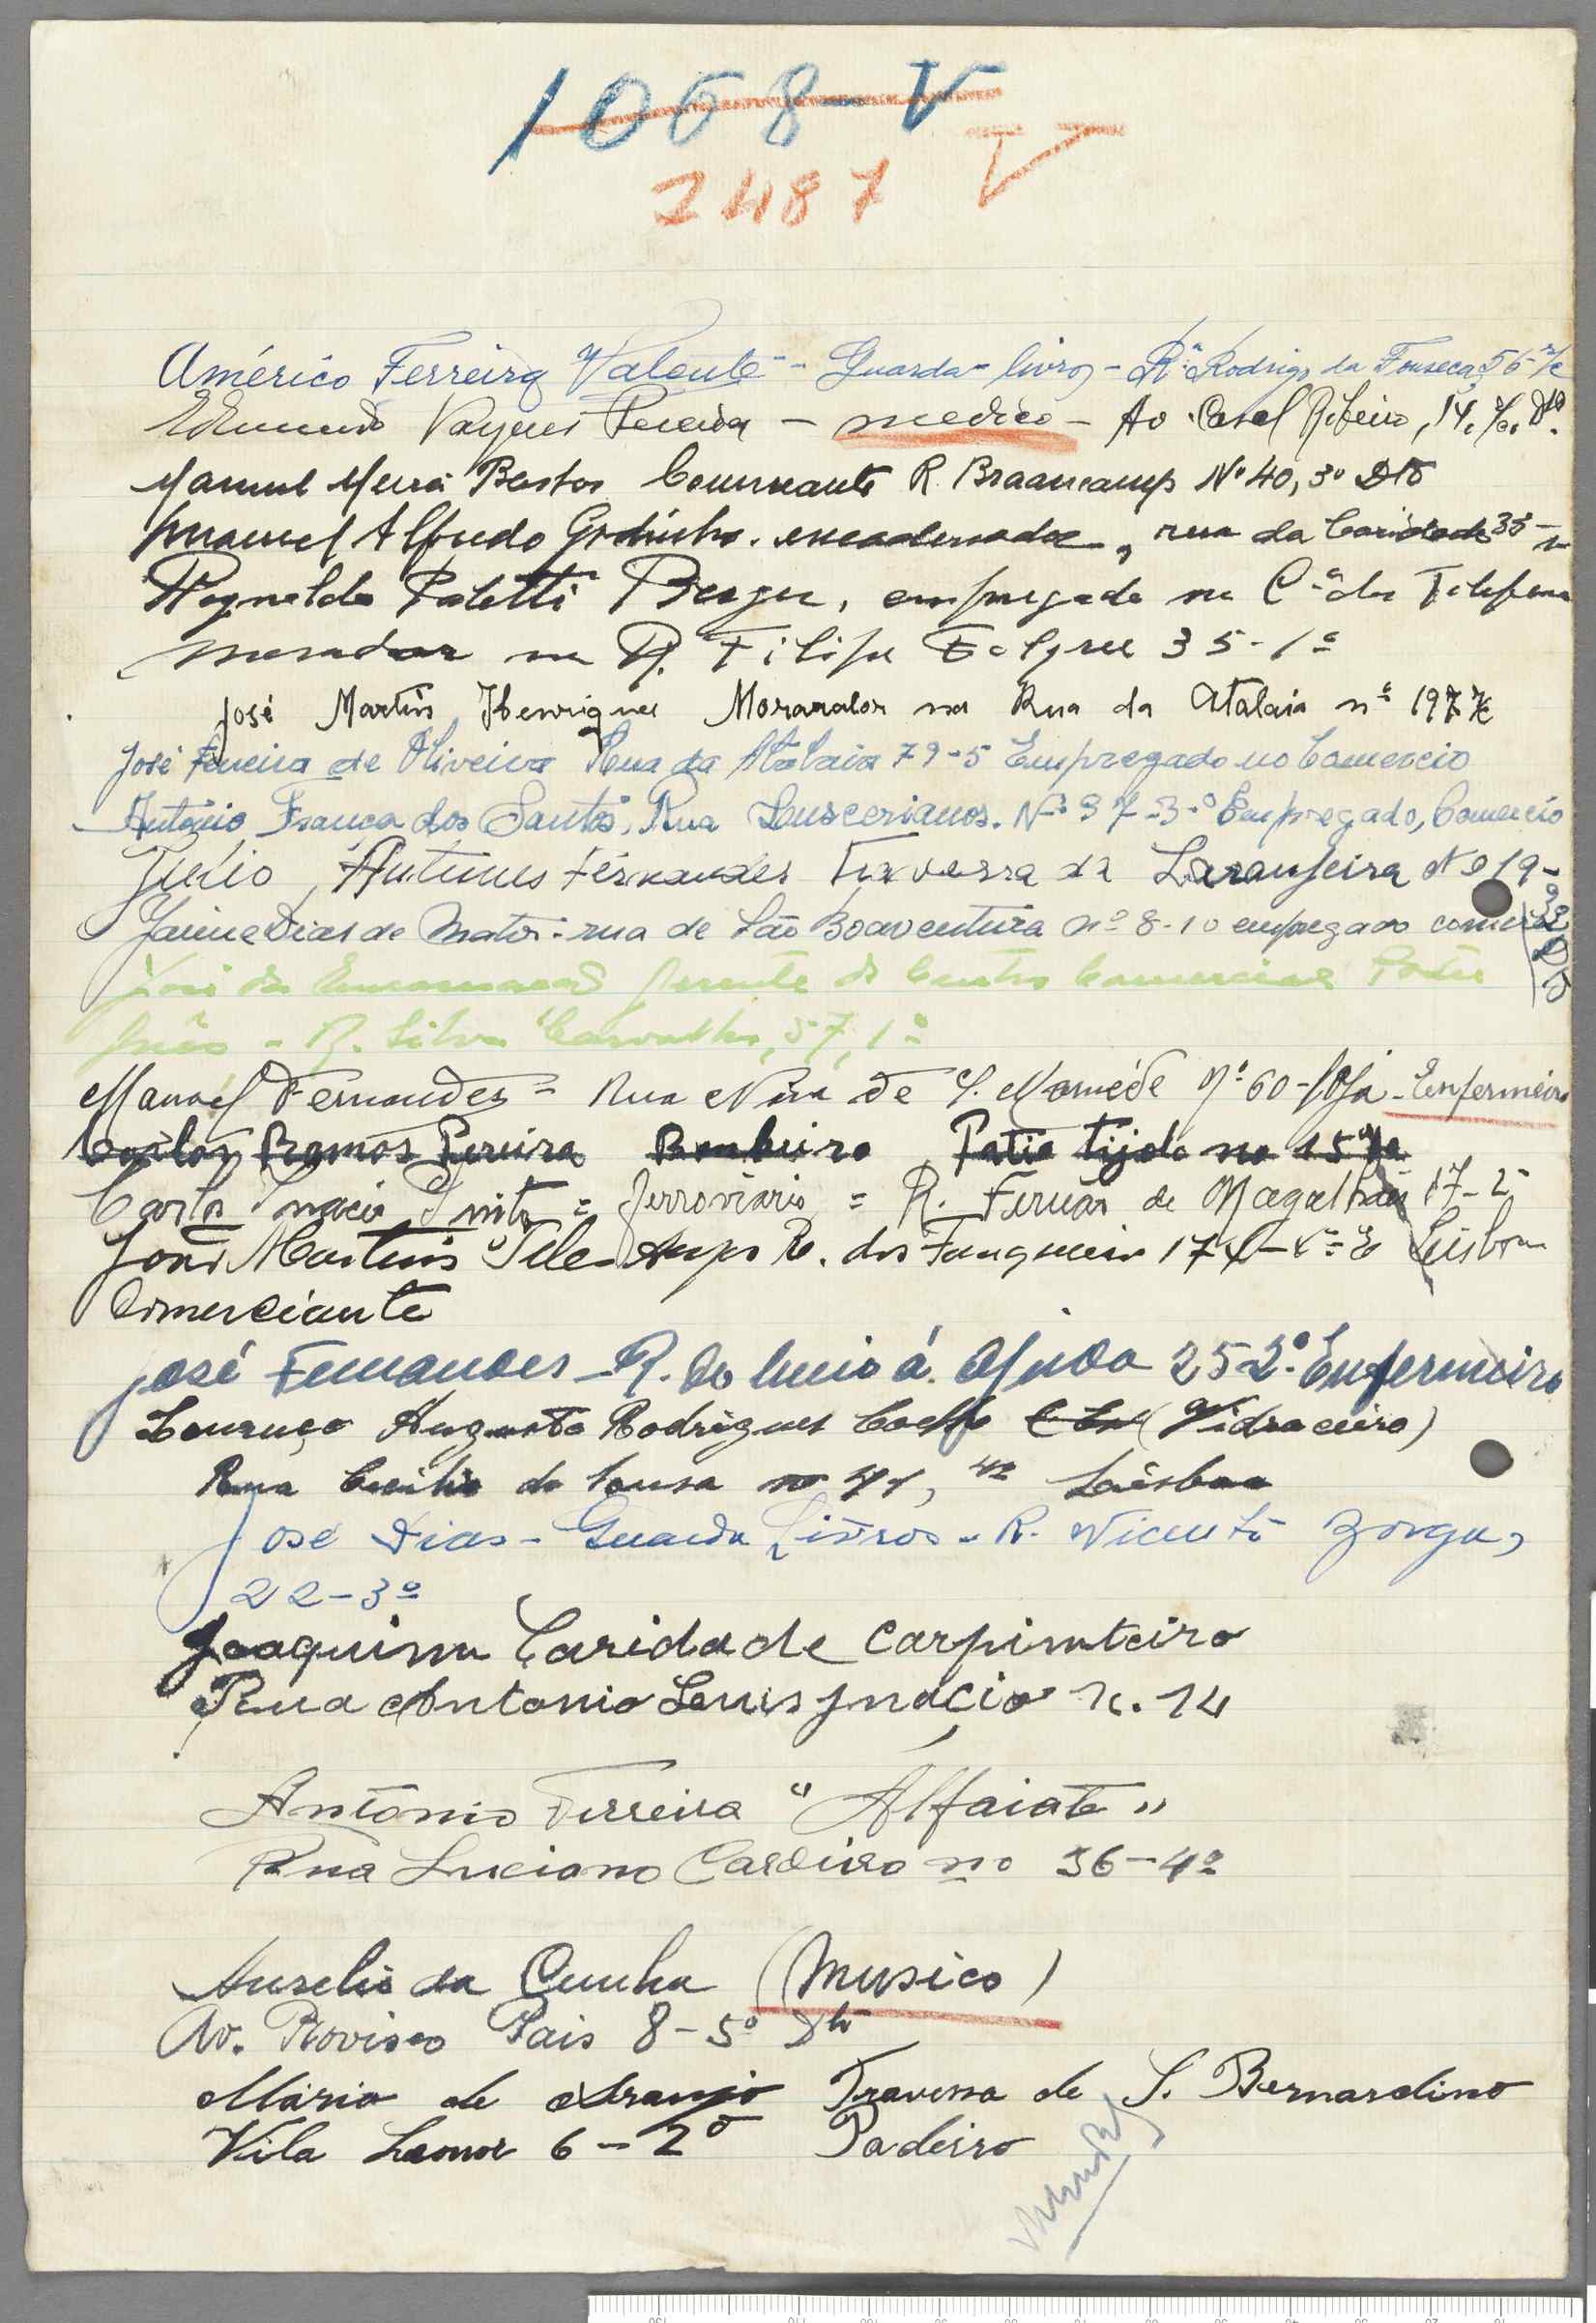 1068-V
2487 V
Américo Ferreira Valente - Guarda-livros - Rª Rodrigo da Fonseca, 56 r/c
Edmundo Vaques Pereira - medico - Av Casal Ribeiro, 14, r/c. Dtº.
Manuel Bastos Comerciante R. Braancamp Nº 40, 3º Dtº
Manuel Alfredo Godinho. encadernador, rua da Caridade 35
Reynaldo Berger, empregado na Cª dos Telefones
morador na R. Filipe Folque 35-1º
José Martins Henriques Morarador na Rua da Atalaia nº 197 r/c
José Ferreira de Oliveira Rua da Atalaia 79-5 Empregado no Comercio
António Franca dos Santos, Rua Nº 37-3º Empregado, Comercio
Julio Antunes Fernandes Travessa da Laranjeira Nº 19-
Jaime Dias de Matos - rua de São Boaventura nº 8-10 empregado comercial
José da Encarnação Gerente do Centro Comercial
- R. Silva Carvalho, 57, 1º
Manuel Fernandes = Rua Nova de S. Mamede Nº 60-loja - Enfermeiro
Carlos Ramos Pereira Bombeiro Patio tijolo no 15
Carlos Inacio = ferroviario = R. Fernão de Magalhães 17-2º
João Martins R. dos Fanqueiros Lisboa
Comerciante
José Fernandes - R. do Cruzeiro á Ajuda 25 2º. Enfermeiro
Lourenço Augusto Rodrigues Coelho (Vidraceiro)
Rua Cecilio de Sousa nº 71, 4º Lisboa
José Dias - Guarda Livros - R. Vicente Borga,
22-3º
Joaquim Caridade Carpinteiro
Rua Antonio Luis Ynácio n. 14
António Ferreira "Alfaiate"
Rua Luciano Cardeiro no 36-4º
Aurelio da Cunha (Musico)
Av. Rovisco Pais 8-5º Dtº
Mário de Araujo Travessa de S. Bernardino
Vila Leonor 6-2º Padeiro